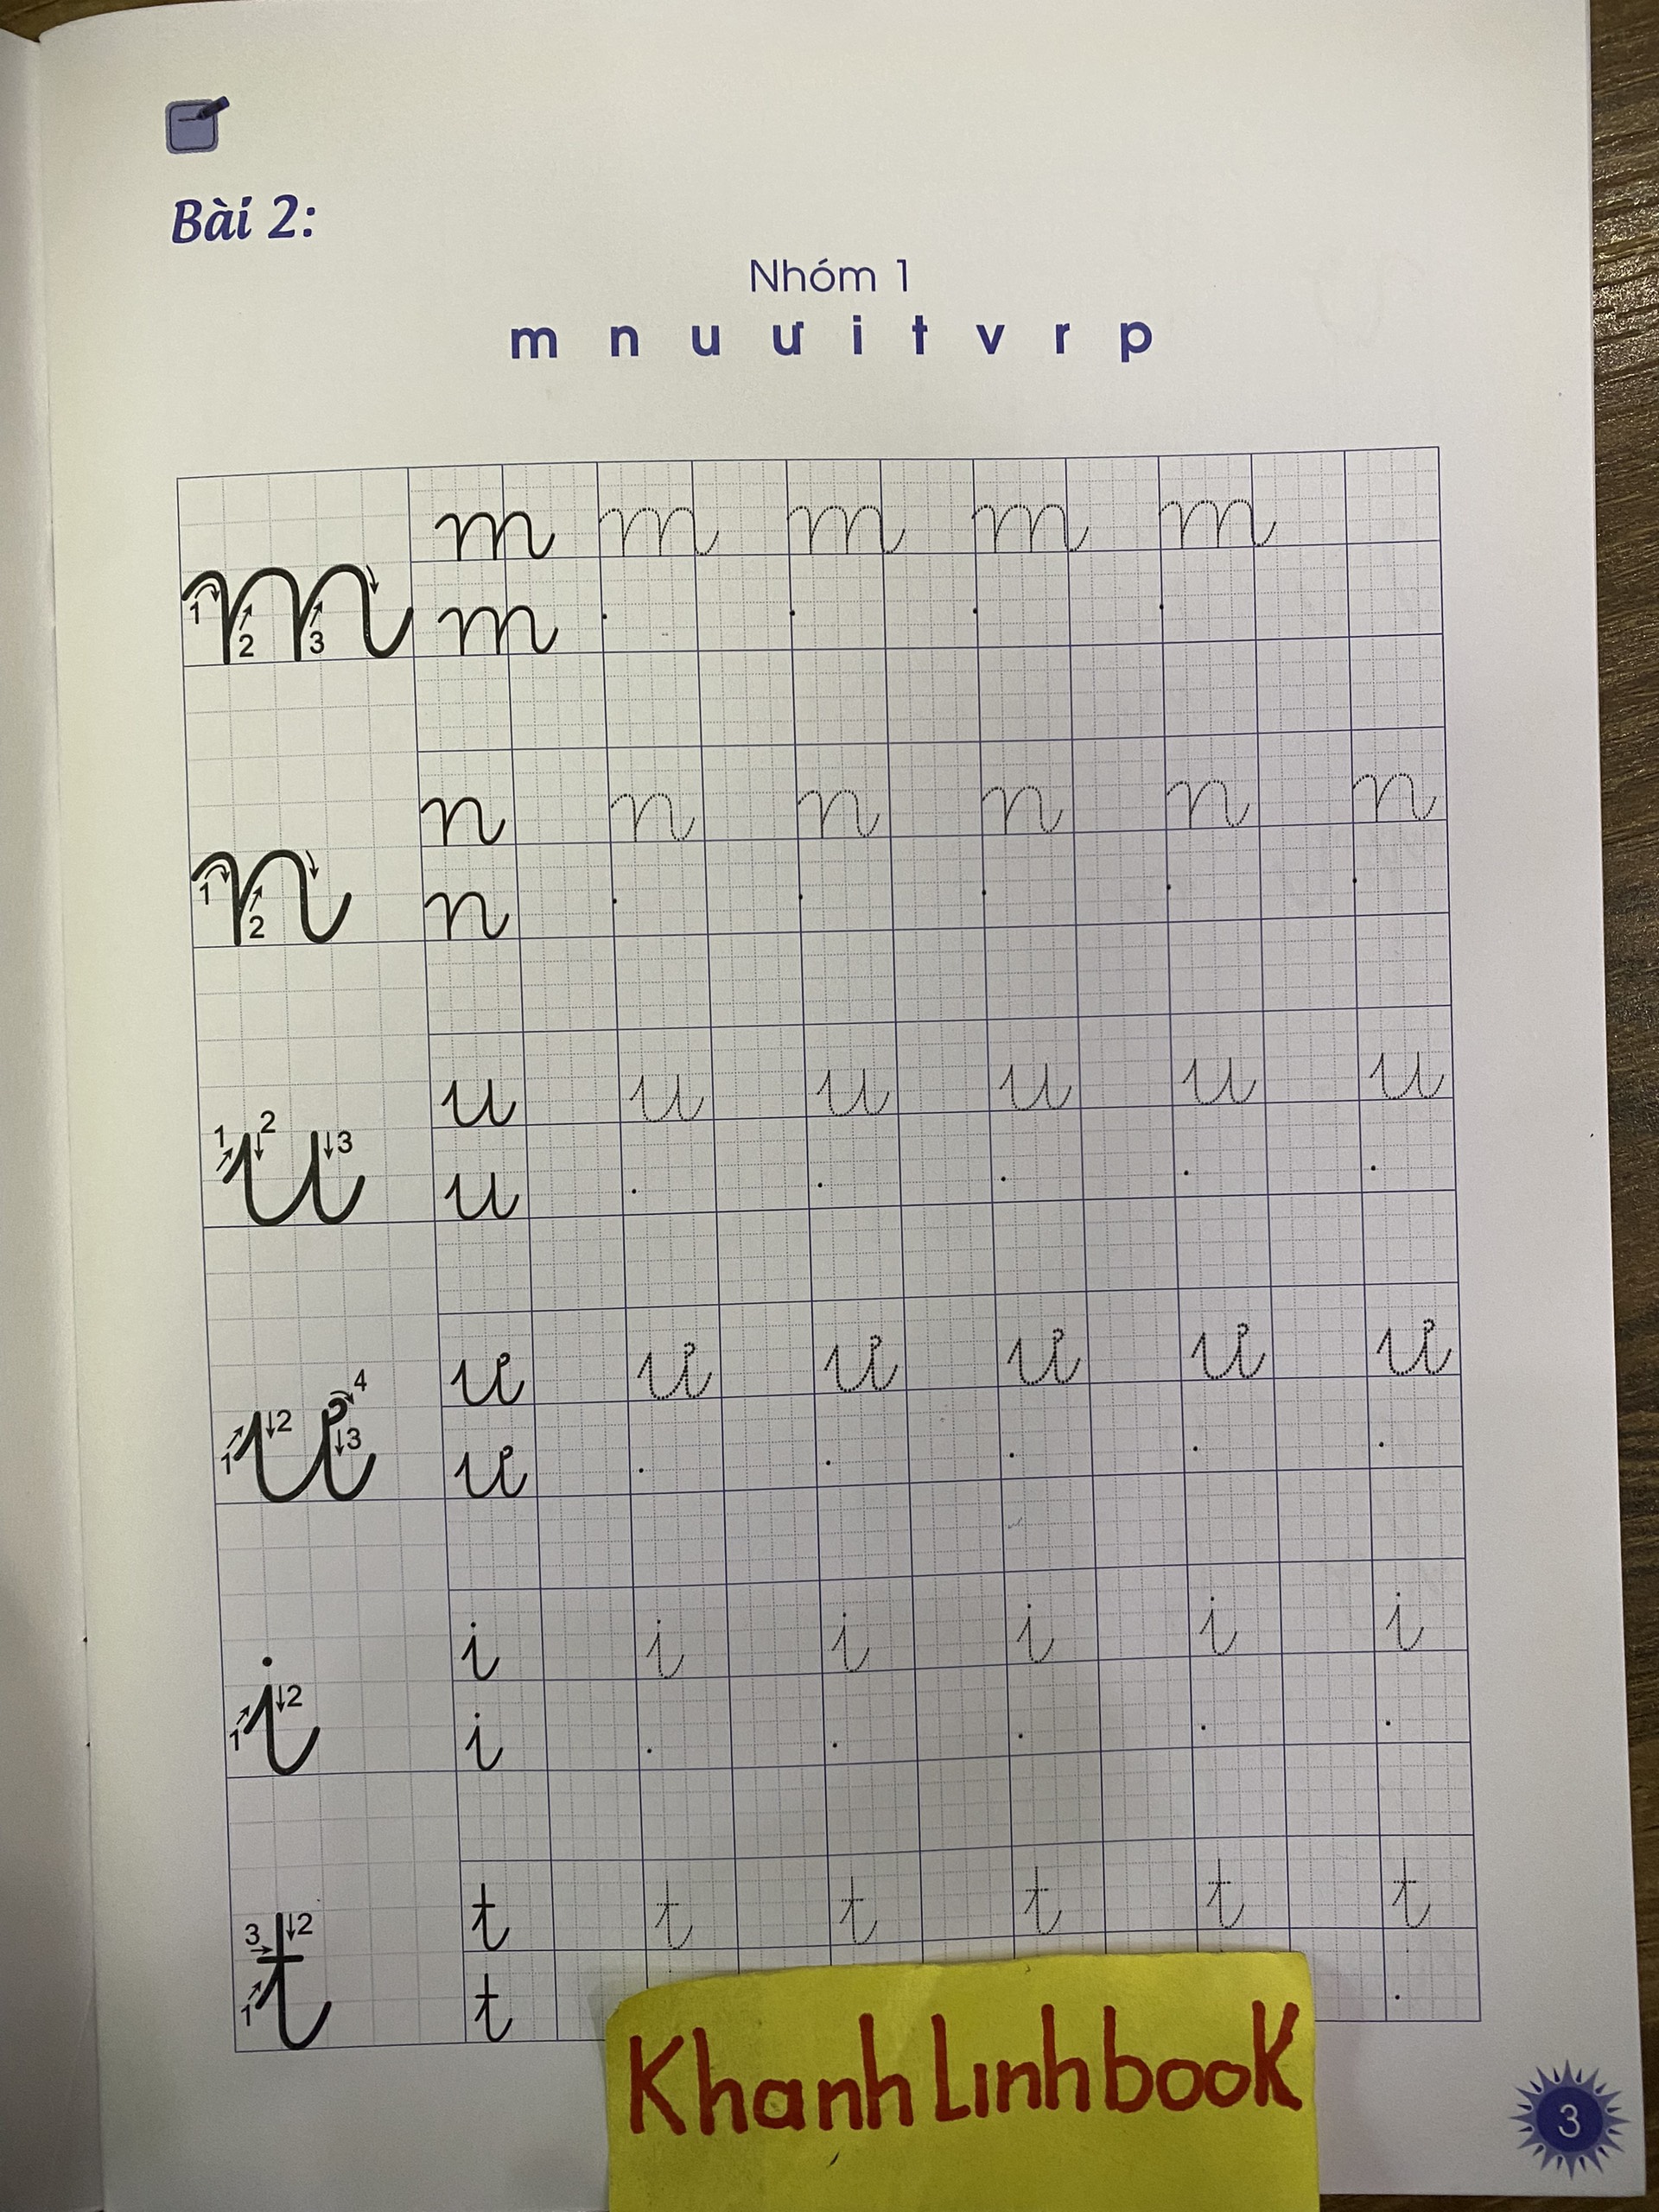 Bài 2:
Nhóm 1
m n u ư i t v r p
1 2 3 m m m m m
m
1 2 n n n n n n
n
1 2 3 u u u u u u
u
1 2 3 4 ư ư ư ư ư ư
ư
1 2 i i i i i i
i
1 2 3 t t t t t t
t
Khanh Linh book
3